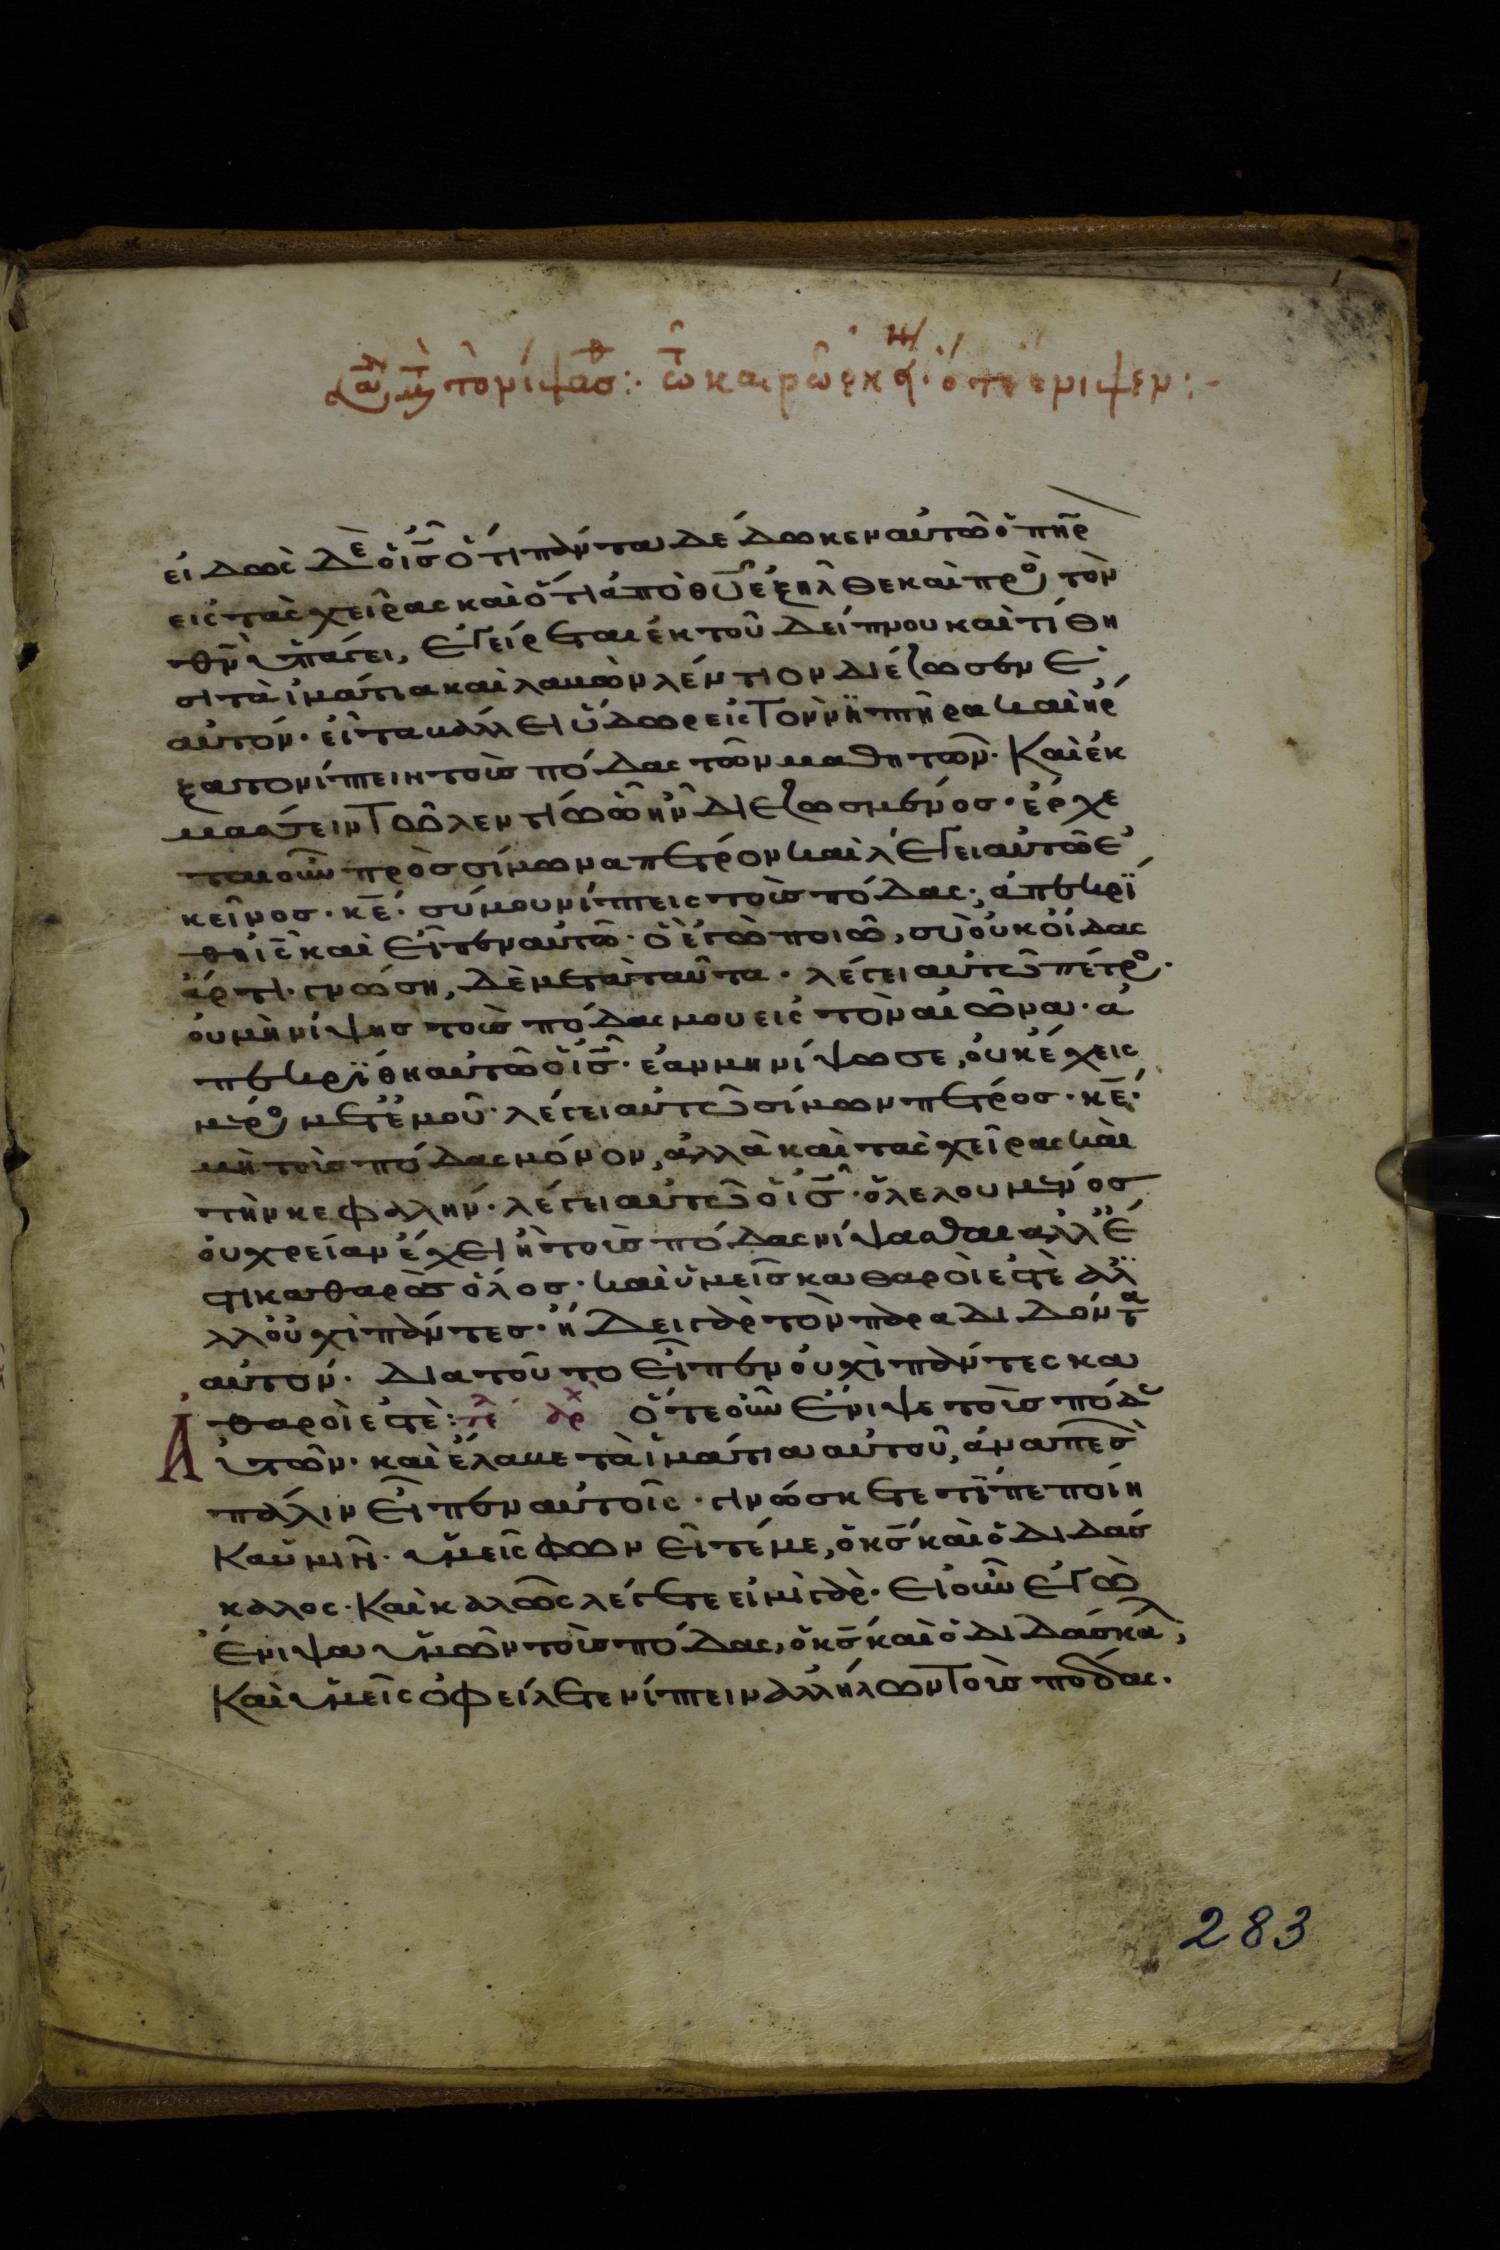 τὸ νίψασθ:· τῶ καιρῶ ἐκείν· ὅτε ἔνιψεν:-
εἰδὼς δὲ ὁ ις ὅτι πάντα δέδωκεν αὐτῶ ὁ πηρ
εἰς τὰς χεῖρας καὶ ὅτι ἀπὸ θυ ἐξῆλθε καὶ πρὸς τὸν
θν ὑπάγει, ἐγείρεται ἐκ τοῦ δείπνου καὶ τίθη
σι τὰ ἱμάτια καὶ λαβὼν λέντιον διέζωσεν ἑ
αυτόν· εἶτα βάλλει ὕδωρ εἰς τὸν νιπτῆρα καὶ ἤρ
ξατο νίπτειν τοὺς πόδας τῶν μαθητῶν· Καὶ ἐκ
μάσσειν τῶ λεντίω ὧ ἦν διεζωσμένος· ἔρχε
ται οὖν πρὸς σίμωνα πέτρον καὶ λέγει αὐτῶ ἐ
κεῖνος· κε· σύ μου νίπτεις τοὺς πόδας; ἀπεκρί
θη ις καὶ εἶπεν αὐτῶ· ὃ ἐγὼ ποιῶ, σὺ οὐκ οἶδας
ἄρτι· γνώση, δὲ μετὰ ταῦτα· λέγει αὐτῶ πέτρος·
οὐ μὴ νίψης τοὺς πόδας μου εἰς τὸν αἰῶνα· ἀ
πεκρίθη αὐτῶ ὁ ις· ἐὰν μὴ νίψω σε, οὐκ ἔχεις
μέρος μετ' ἐμοῦ· λέγει αὐτῶ σίμων πέτρος· κε·
μὴ τοὺς πόδας μόνον, ἀλλὰ καὶ τὰς χεῖρας καὶ
τὴν κεφαλήν· λέγει αὐτῶ ὁ ις· ὁ λελουμένος
οὐ χρείαν ἔχει ἢ τοὺς πόδας νίψασθαι ἀλλ' ἔ
στι καθαρὸς ὅλος· καὶ ὑμεῖς καθαροί ἐστὲ ἀλ
λλ οὐχὶ πάντες· ἤδει γὰρ τὸν παραδιδόντα
αὐτόν· διατοῦτο εἶπεν οὐχὶ πάντες κα
θαροί ἐστὲ: τέλ ἀρχ Ὅτε οὖν ἔνιψε τοὺς πόδ
αὐτῶν· καὶ ἔλαβε τὰ ἱμάτια αὐτοῦ, ἀναπεσ
πάλιν εἶπεν αὐτοῖς· γινώσκετε τί πεποίη
κα ὑμῖν· ὑμεῖς φων εῖτέ με, ὁ κς καὶ ὁ διδάσ
καλος· Καὶ καλῶς λέγετε εἰμὶ γάρ· εἰ οὖν ἐγὼ
ἔνιψα ὑμῶν τοὺς πόδας, ὁ κς καὶ ὁ διδάσκαλ,
Καὶ ὑμεῖς ὀφείλετε νίπτειν ἀλλήλων τοὺς πόδας·
283